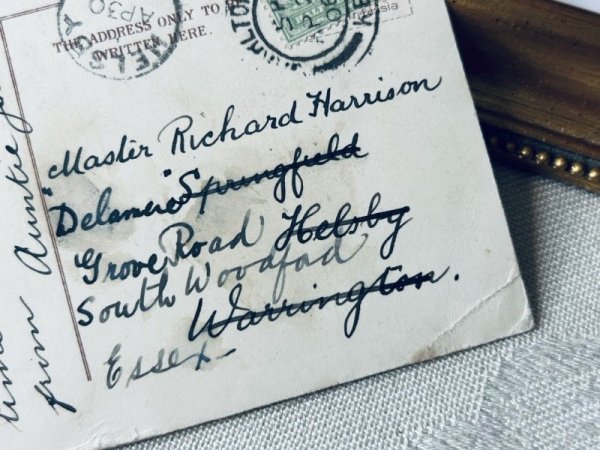 THE ADDRESS ONLY TO
WRITTEN HERE.
HELSBY
AP 30
Master Richard Harrison
"Delamere" Springfield
Grove Road Helsby
South Woodford
Warrington.
Essex
from Auntie
time